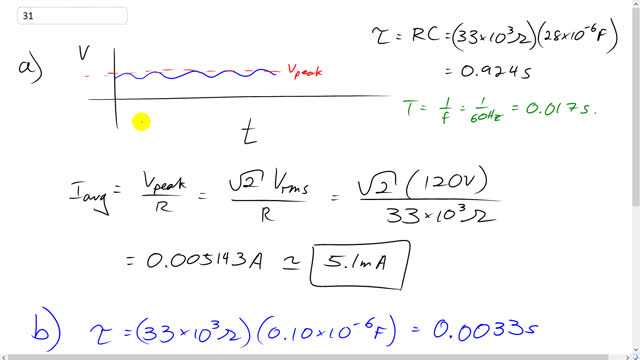 31
τ = RC = (33×10³Ω)(28×10⁻⁶F)
= 0.924s
a) V
Vpeak
T = 1/f = 1/60Hz = 0.017s.
t
Iavg = Vpeak/R = √2 Vrms/R = √2 (120V)/33×10³Ω
= 0.005143A ≃ 5.1mA
b) τ = (33×10³Ω)(0.10×10⁻⁶F) = 0.0033s